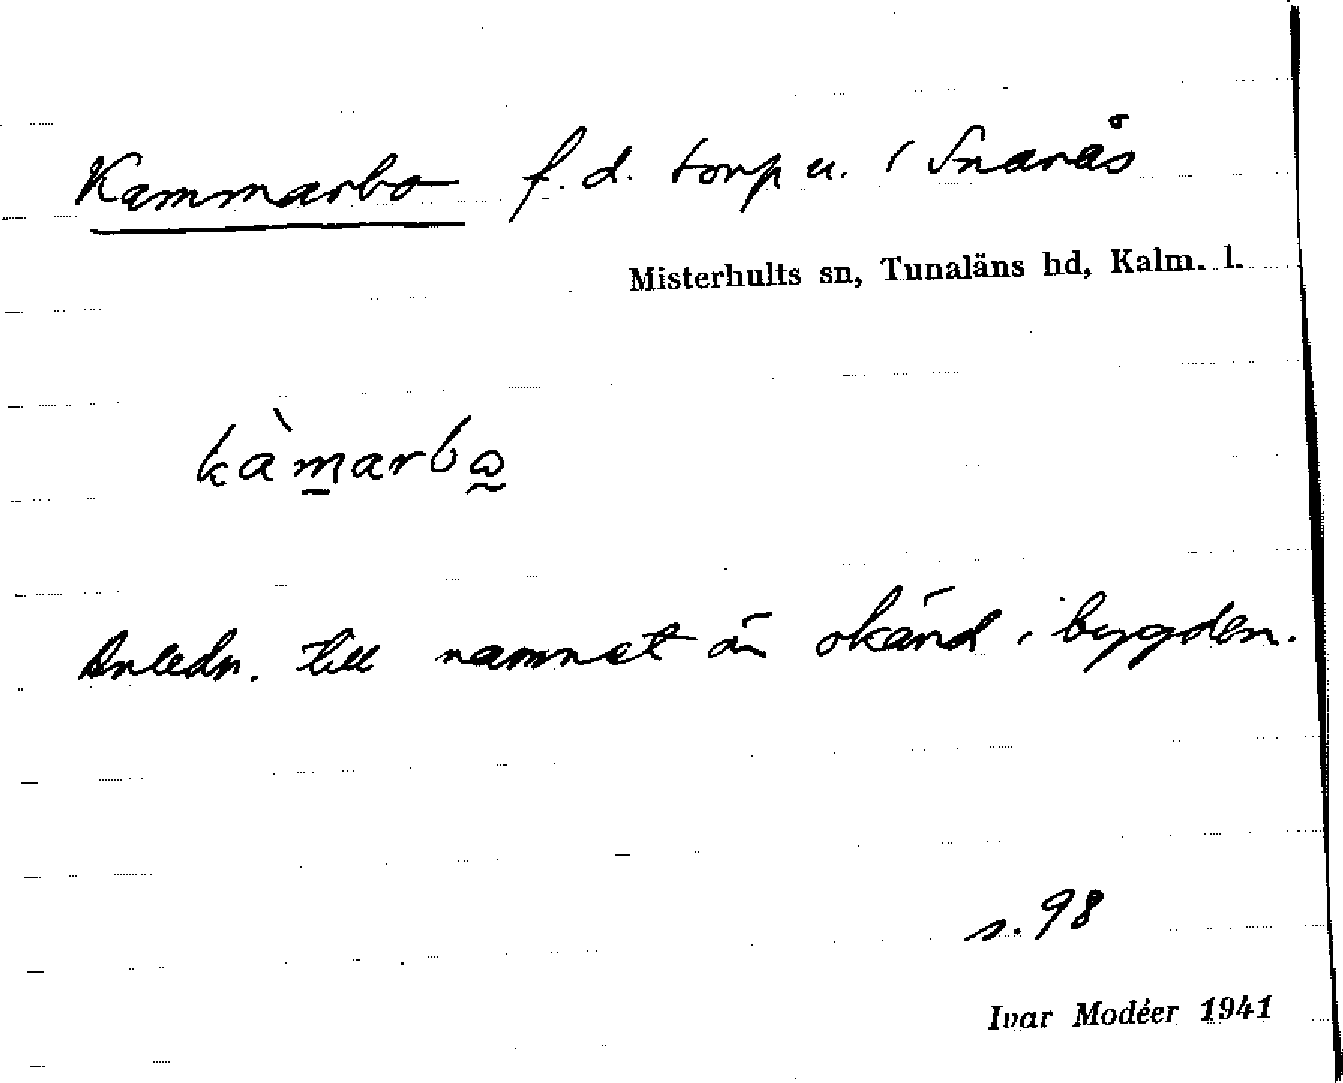 Kammarbo f.d. torp u. 1 Snarås
Misterhults sn, Tunaläns hd, Kalm. l.
kàmarbo
Anledn. till namnet är okänd i bygden.
s. 98
Ivar Modéer 1941